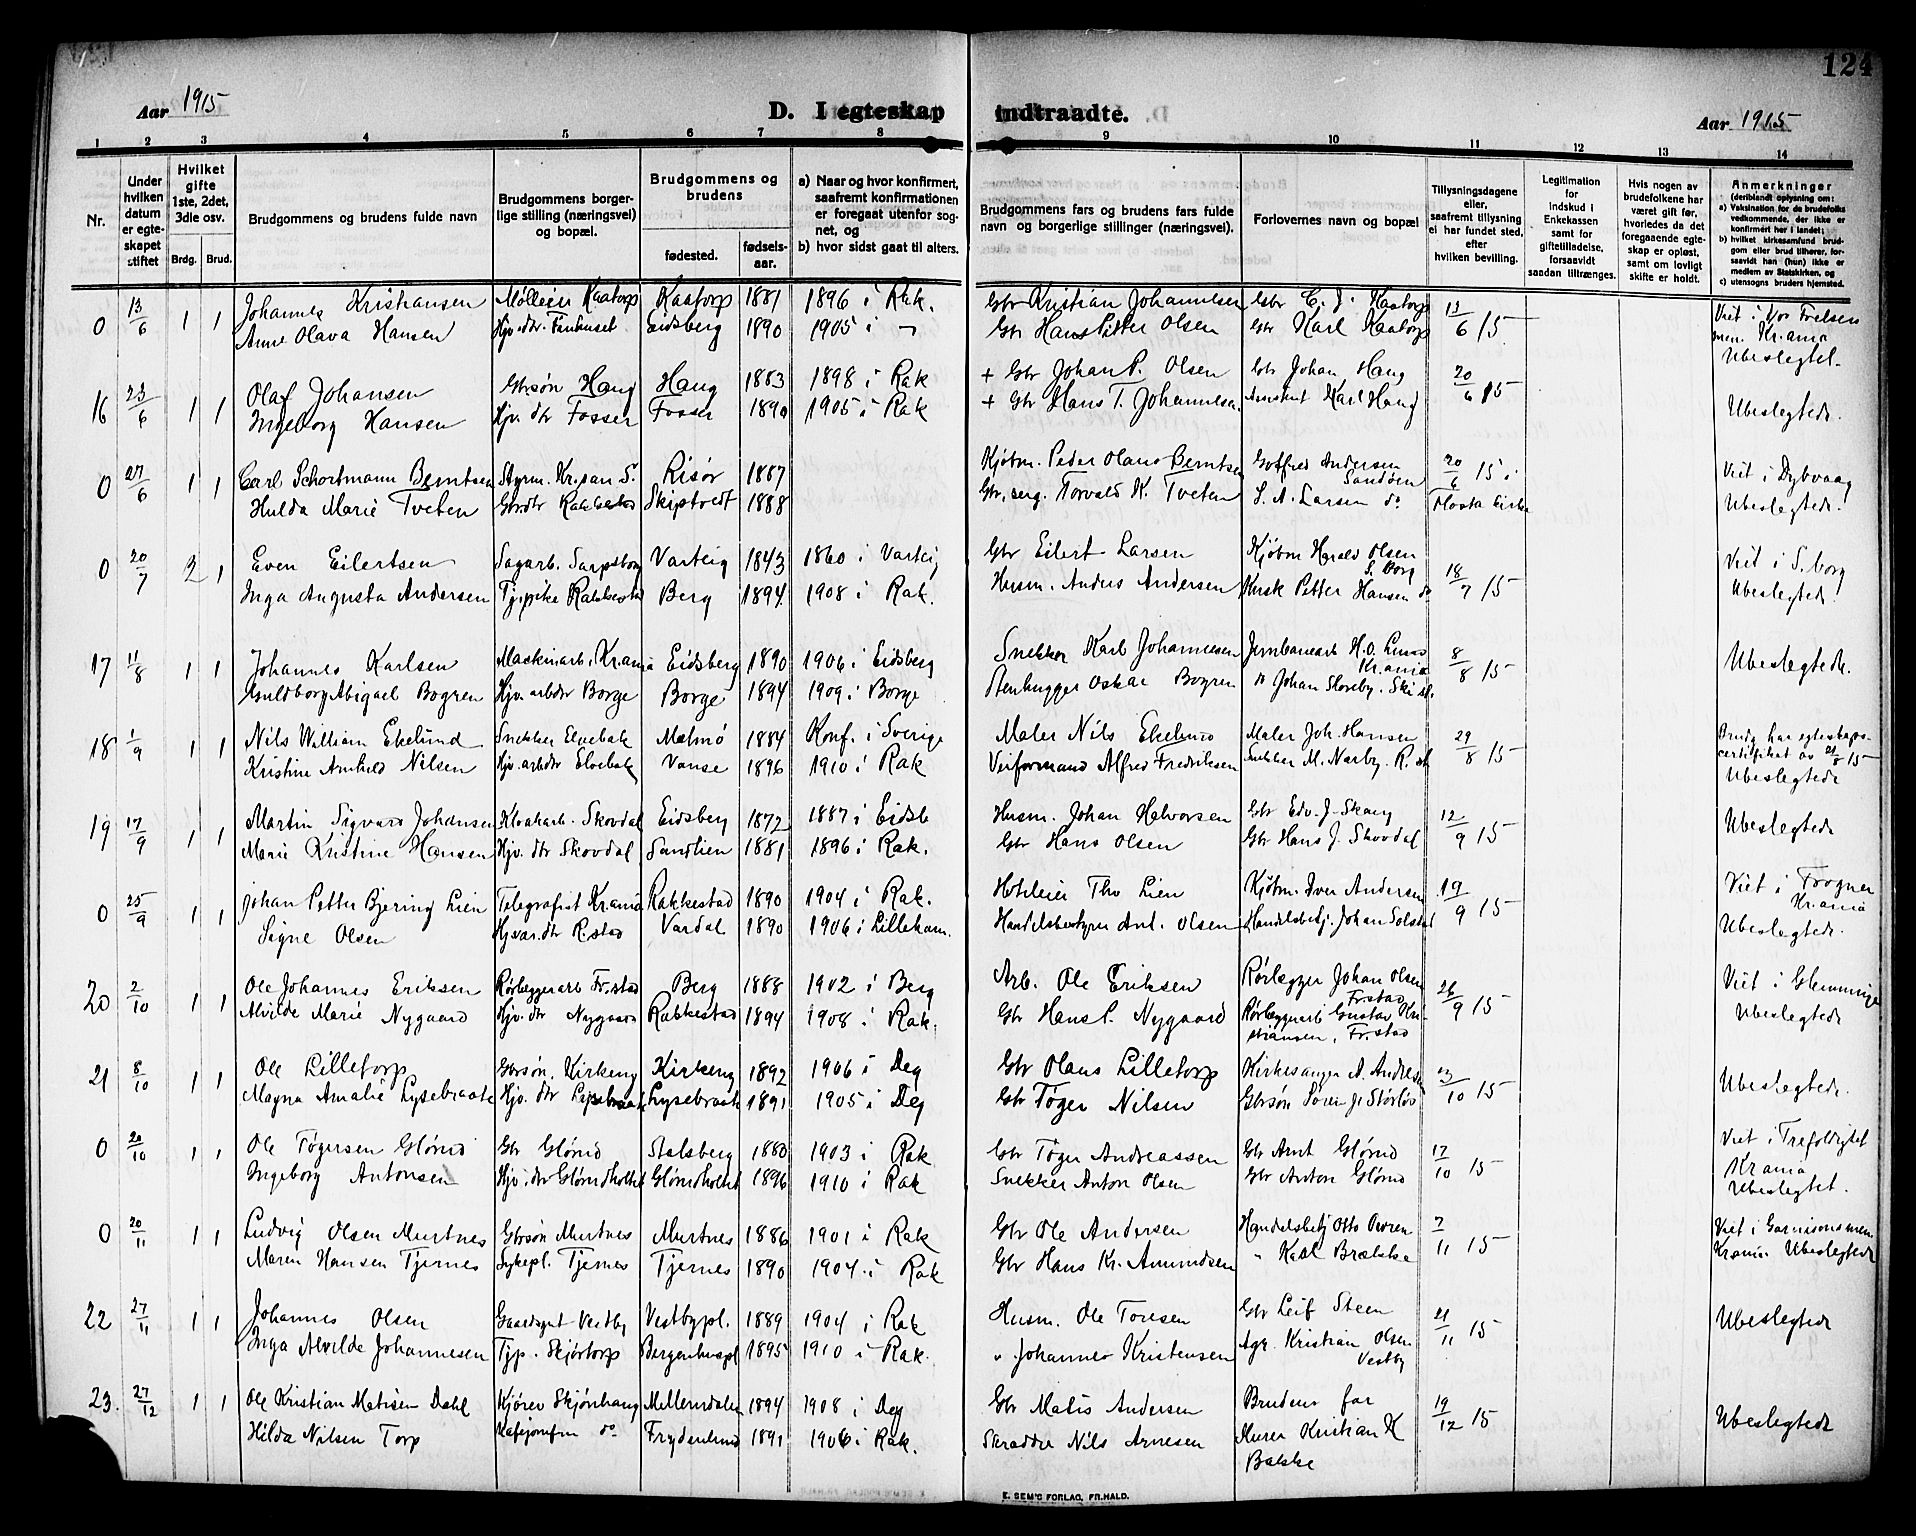 124
Aar 1915
D. I egteskap indtraadte.
Aar 1915
1 2 3 4 5 6 7 8 9 10 11 12 13 14
Nr.
Under hvilken datum er egteskapet stiftet
Hvilket gifte 1ste, 2det, 3die osv.
Brdg. Brud.
Brudgommens og brudens fulde navn
Brudgommens borgerlige stilling (næringsvei) og bopæl.
Brudgommens og brudens
fødested. fødselsaar.
a) Naar og hvor konfirmert, saafremt konfirmationen er foregaat utenfor sognet, og
b) hvor sidst gaat til alters.
Brudgommens fars og brudens fars fulde navn og borgerlige stillinger (næringsvei).
Forlovernes navn og bopæl
Tillysningsdagene eller, saafremt tillysning ei har fundet sted, efter hvilken bevilling.
Legitimation for indskud i Enkekassen samt for giftetilladelse, forsaavidt saadan tiltrænges.
Hvis nogen av brudefolkene har været gift før, hvorledes da det foregaaende egteskap er opløst, samt om lovligt skifte er holdt.
Anmerkninger (deriblandt oplysning om:
a) Vaksination for de brudefolks vedkommende, der ikke er konfirmert her i landet;
b) hvilket kirkesamfund brudgom eller brud tilhører, forsaavidt han (hun) ikke er medlem av Statskirken, og
c) utensogns bruders hjemsted.
0 13/6 1 1 Johannes Kristiansen Mølleier Kaatorp Kaatorp 1881 1896 i Rak. Gbr Kristian Johannesen Gbr C. J. Kaatorp 13/6 15 Viet i Vor Frelsers
Anne Olava Hansen Eidsberg 1890 1905 i " Gbr Hans Petter Olsen Gbr Karl Kaatorp men. Krania
Ubeslegtet.
16 23/6 1 1 Olaf Johansen Gbrsøn Haug Haug 1883 1898 i Rak + Gbr Johan P. Olsen Gbr Johan Haug 20/6 15
Ingeborg Hansen Hjv. dtr Fosser Fosser 1890 1905 i Rak + Gbr Hans T. Johannesen. Karl Haug Ubeslegtede.
0 27/6 1 1 Carl Schortmann Berntsen Styrm. Kr.san S. Risør 1887 Kjøbm. Peder Olaus Berntsen Gotfred Andersen Sandøen 20/6 15 i Viet i Dybvaag
Hulda Marie Tveten Gbrdtr Rakkestad Skiptvedt 1888 Gbr, serg. Torvald K. Tveten S. A. Larsen do Flosta Kirke Ubeslegtede.
0 20/7 2 1 Even Eilertsen Sagarb. Sarpsborg Varteig 1843 1860 i Varteig Gbr Eilert Larsen Kjøbm Harald Olsen S. borg 18/7 15 Viet i S. borg
Inga Augusta Andersen Tj.pike Rakkestad Berg 1894 1908 i Rak. Husm. Anders Andersen Petter Hansen do Ubeslegtede.
17 11/8 1 1 Johannes Karlsen Maskinarb. Krania Eidsberg 1890 1906 i Eidsberg Snekker Karl Johannesen Jernbanearb H. O. Krania 8/8 15 Ubeslegtede.
Guldborg Abigael Bogren Hjv. arbdtr Borge Borge 1894 1909 i Borge Stenhugger Oskar Bogren " Johan
18 1/9 1 1 Nils William Ekelund Snekker Elvebak Malmø 1884 Konf. i Sverige Maler Nils Ekelund Maler Joh. Hansen 29/8 15 Brudg. har egteskaps-
Kristine Arnhild Nilsen Hjv. arbdtr Elvebak Vanse 1896 1910 i Rak Veiformand Alfred Fredriksen Snekker M. Narby. R. st certifikat av 21/8 15
Ubeslegtede
19 17/9 1 1 Martin Sigvard Johansen Kloakarb. Skovdal Eidsberg 1872 1887 i Eidsb Husm. Johan Halvorsen Gbr Edv. J. Skaug 12/9 15 Ubeslegtede
Marie Kristine Hansen Hjv. dtr Skovdal Sandlien 1881 1896 i Rak. Gbr Hans Olsen Gbr Hans J. Skovdal
0 25/9 1 1 Johan Petter Bjering Lien Telegrafist Krania Rakkestad 1890 1904 i Rak. Hoteleier Thv Lien Kjøbm. Iver Andersen 19/9 15 Viet i Frogner Krania
Signe Olsen Hjvær. dtr R.stad Vardal 1890 1906 i Lilleham. Handelsbestyrer Ant. Olsen Handelsbetj. Johan Solstad Ubeslegtede.
20 2/10 1 1 Ole Johannes Eriksen Rørleggerarb Fr.stad Berg 1888 1902 i Berg Arb. Ole Eriksen Rørlegger Johan Olsen Fr.stad 26/9 15 Viet i Glemminge
Alvilde Marie Nygaard Hjv. dtr Nygaard Rakkestad 1894 1908 i Rak. Gbr Hans P. Nygaard Rørleggerarb Gustav Kristiansen, Fr.stad Ubeslegtede
21 8/10 1 1 Ole Lilletorp Gbrsøn. Kirkeng Kirkeng 1892 1906 i Deg Gbr Olaus Lilletorp Kirkesanger A. Andresen 3/10 15 Ubeslegtede.
Magna Amalie Lysebraate Hjv. dtr Lysebraate Lysebraate 1891 1905 i Deg Gbr Tøger Nilsen Gbrsøn
0 20/10 1 1 Ole Tøgersen Glørud Gbr Glørud Stalsberg 1880 1903 i Rak Gbr Tøger Andreassen Gbr Arnt Glørud 17/10 15 Viet i Trefoldighet
Ingeborg Antonsen Hjv. dtr Glørudholtet Glørudholtet 1896 1910 i Rak Snekker Anton Olsen Gbr Anton Glørud Krania
Ubeslegtet.
0 20/11 1 1 Ludvig Olsen Murtnes Gbrsøn Murtnes Murtnes 1886 1901 i Rak Gbr Ole Andersen Handelsbetj Otto 7/11 15 Viet i Garnisonsmen
Maren Hansen Tjernes Sykepl. Tjernes Tjernes 1890 1904 i Rak Gbr Hans Kr. Amundsen " Karl Brække Krania Ubeslegtede
22 27/11 1 1 Johannes Olsen Gaardsgut Vestby Vestbypl. 1889 1904 i Rak Husm. Ole Toresen Gbr Leif Steen 21/11 15 Ubeslegtede
Inga Alvilde Johannesen Tjp. Skjørtorp Borgenhuspl 1895 1910 i Rak. " Johannes Kristensen Agr. Kristian Olsen Vestby
23. 27/12 1 1 Ole Kristian Matisen Dahl Kjører Skjønhaug Mellemdalen 1894 1908 i Deg Gbr Matis Andersen Brudens far 19/12 15 Ubeslegtede
Hilda Nilsen Torp Kafejomfru do Frydenlund 1891 1906 i Rak. Skrædder Nils Arnesen Murer Kristian K Bakke
E. SEM'S FORLAG, FR.HALD.